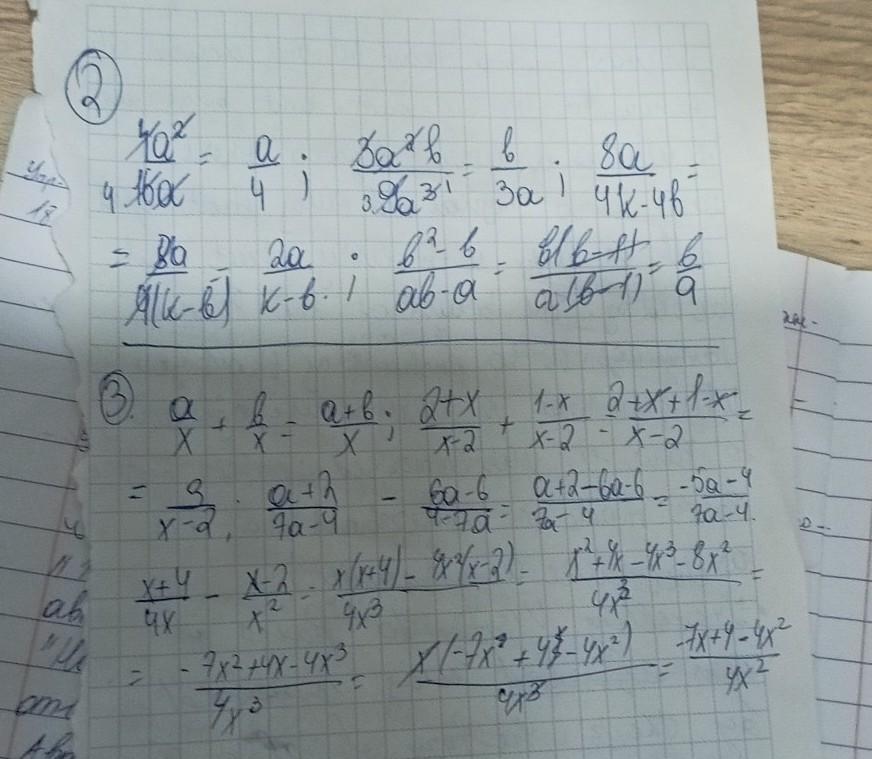 2
4a²/16a = a/4; 3a²b/9a³ = b/3a; 8a/4k-4b =
= 8a/4(k-b) = 2a/k-b; b²-b/ab-a = b(b-1)/a(b-1) = b/a
3. a/x + b/x = a+b/x; 2+x/x-2 + 1-x/x-2 = 2+x+1-x/x-2 =
= 3/x-2; a+2/7a-4 - 6a-6/4-7a = a+2-6a-6/7a-4 = -5a-4/7a-4.
x+4/4x - x-2/x² = x(x+4)-4x²(x-2)/4x³ = x²+4x-4x³-8x²/4x³ =
= -7x²+4x-4x³/4x³ = x(-7x+4-4x²)/4x³ = -7x+4-4x²/4x²
ав